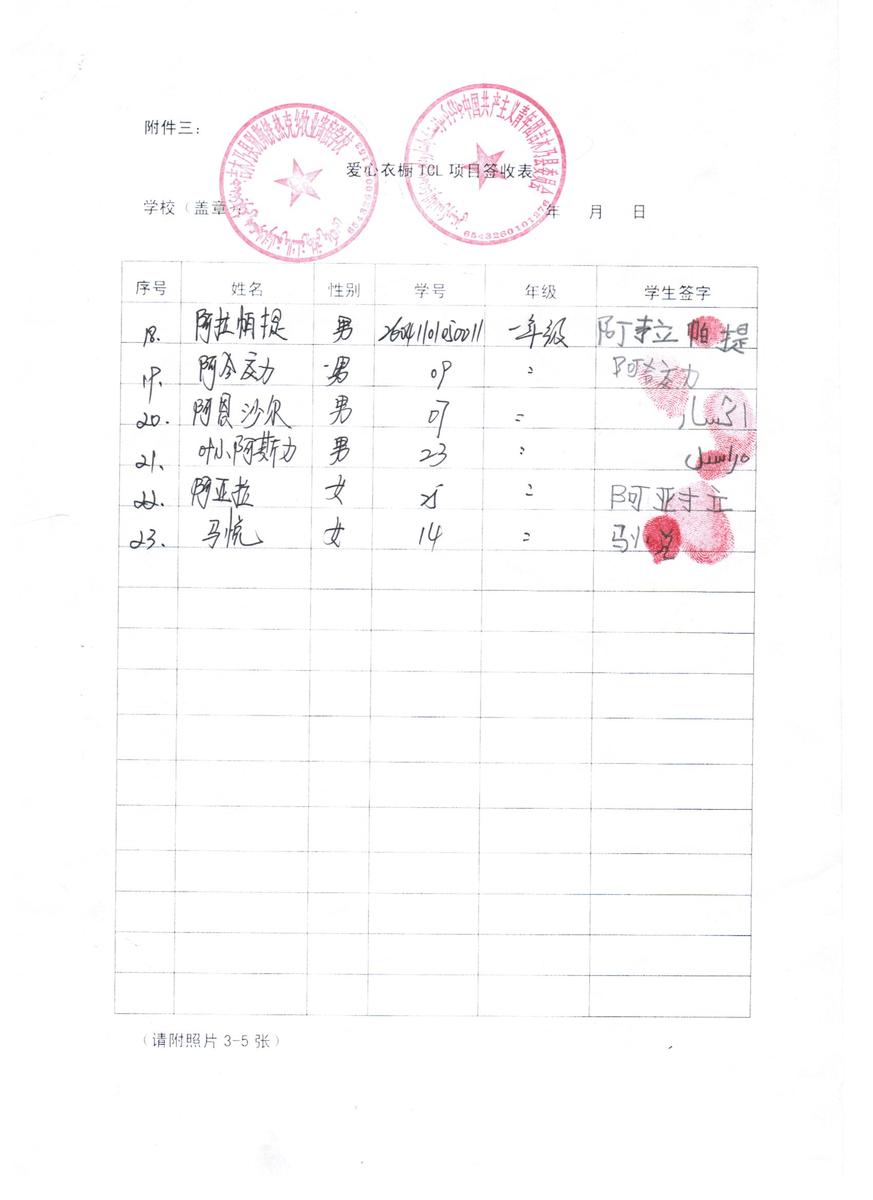 附件三：
爱心衣橱 TCL 项目签收表
学校（盖章）： 年 月 日
中国共产主义青年团吉木乃县委员会
6543260101876
序号 姓名 性别 学号 年级 学生签字
18. 阿拉帕提 男 一年级 阿拉帕提
19. 男 09 〃
20. 阿恩沙尔 男 07 〃
21. 叶尔阿斯力 男 23 〃
22. 阿亚拉 女 25 〃 阿亚拉
23. 马悦 女 14 〃 马悦
（请附照片 3-5 张）